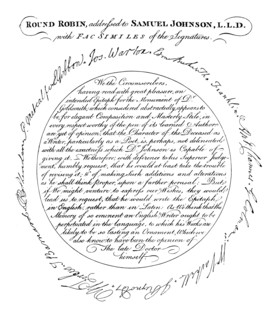 ROUND ROBIN, addressed to SAMUEL JOHNSON, L.L.D.
with FAC SIMILES of the Signatures.
We the Circumscribers,
having read with great pleasure, an
intended Epitaph for the Monument of Dr.
Goldsmith, which considered abstractedly, appears to
be, for elegant Composition and Masterly Stile, in
every respect worthy of the pen of its learned Author;
are yet of opinion, that the Character of the Deceased as
a Writer, particularly as a Poet, is, perhaps, not delineated
with all the exactness which Dr. Johnson is Capable of
giving it. We therefore, with deference to his Superior Judge-
ment, humbly request, that he would at least take the trouble
of revising it; & of making such additions and alterations
as he shall think proper, upon a farther perusal. But
if We might venture to express our Wishes, they would
lead us to request, that he would write the Epitaph
in English, rather than in Latin: As We think that the
Memory of so eminent an English Writer ought to be
perpetuated in the language, to which his Works are
likely to be so lasting an Ornament, Which we
also know to have been the opinion of
The late Doctor
himself.
Jos. Warton
J. Reynolds